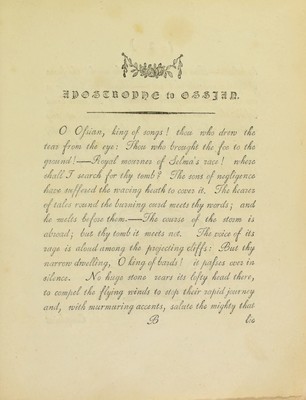 APOSTROPHE to OSSIAN.
O Oſsian, king of songs! thou who drew the
tear from the eye: Thou who brought the foe to the
ground!—Royal mourner of Selma's race! where
shall I search for thy tomb? The sons of negligence
have suffered the waving heath to cover it. The hearer
of tales round the burning oak meets thy words; and
he melts before them.—The course of the storm is
abroad; but thy tomb it meets not. The voice of its
rage is aloud among the projecting cliffs: But thy
narrow dwelling, O king of bards! it paſses over in
silence. No huge stone rears its lofty head there,
to compel the flying winds to stop their rapid journey
and, with murmuring accents, salute the mighty that
B
lie